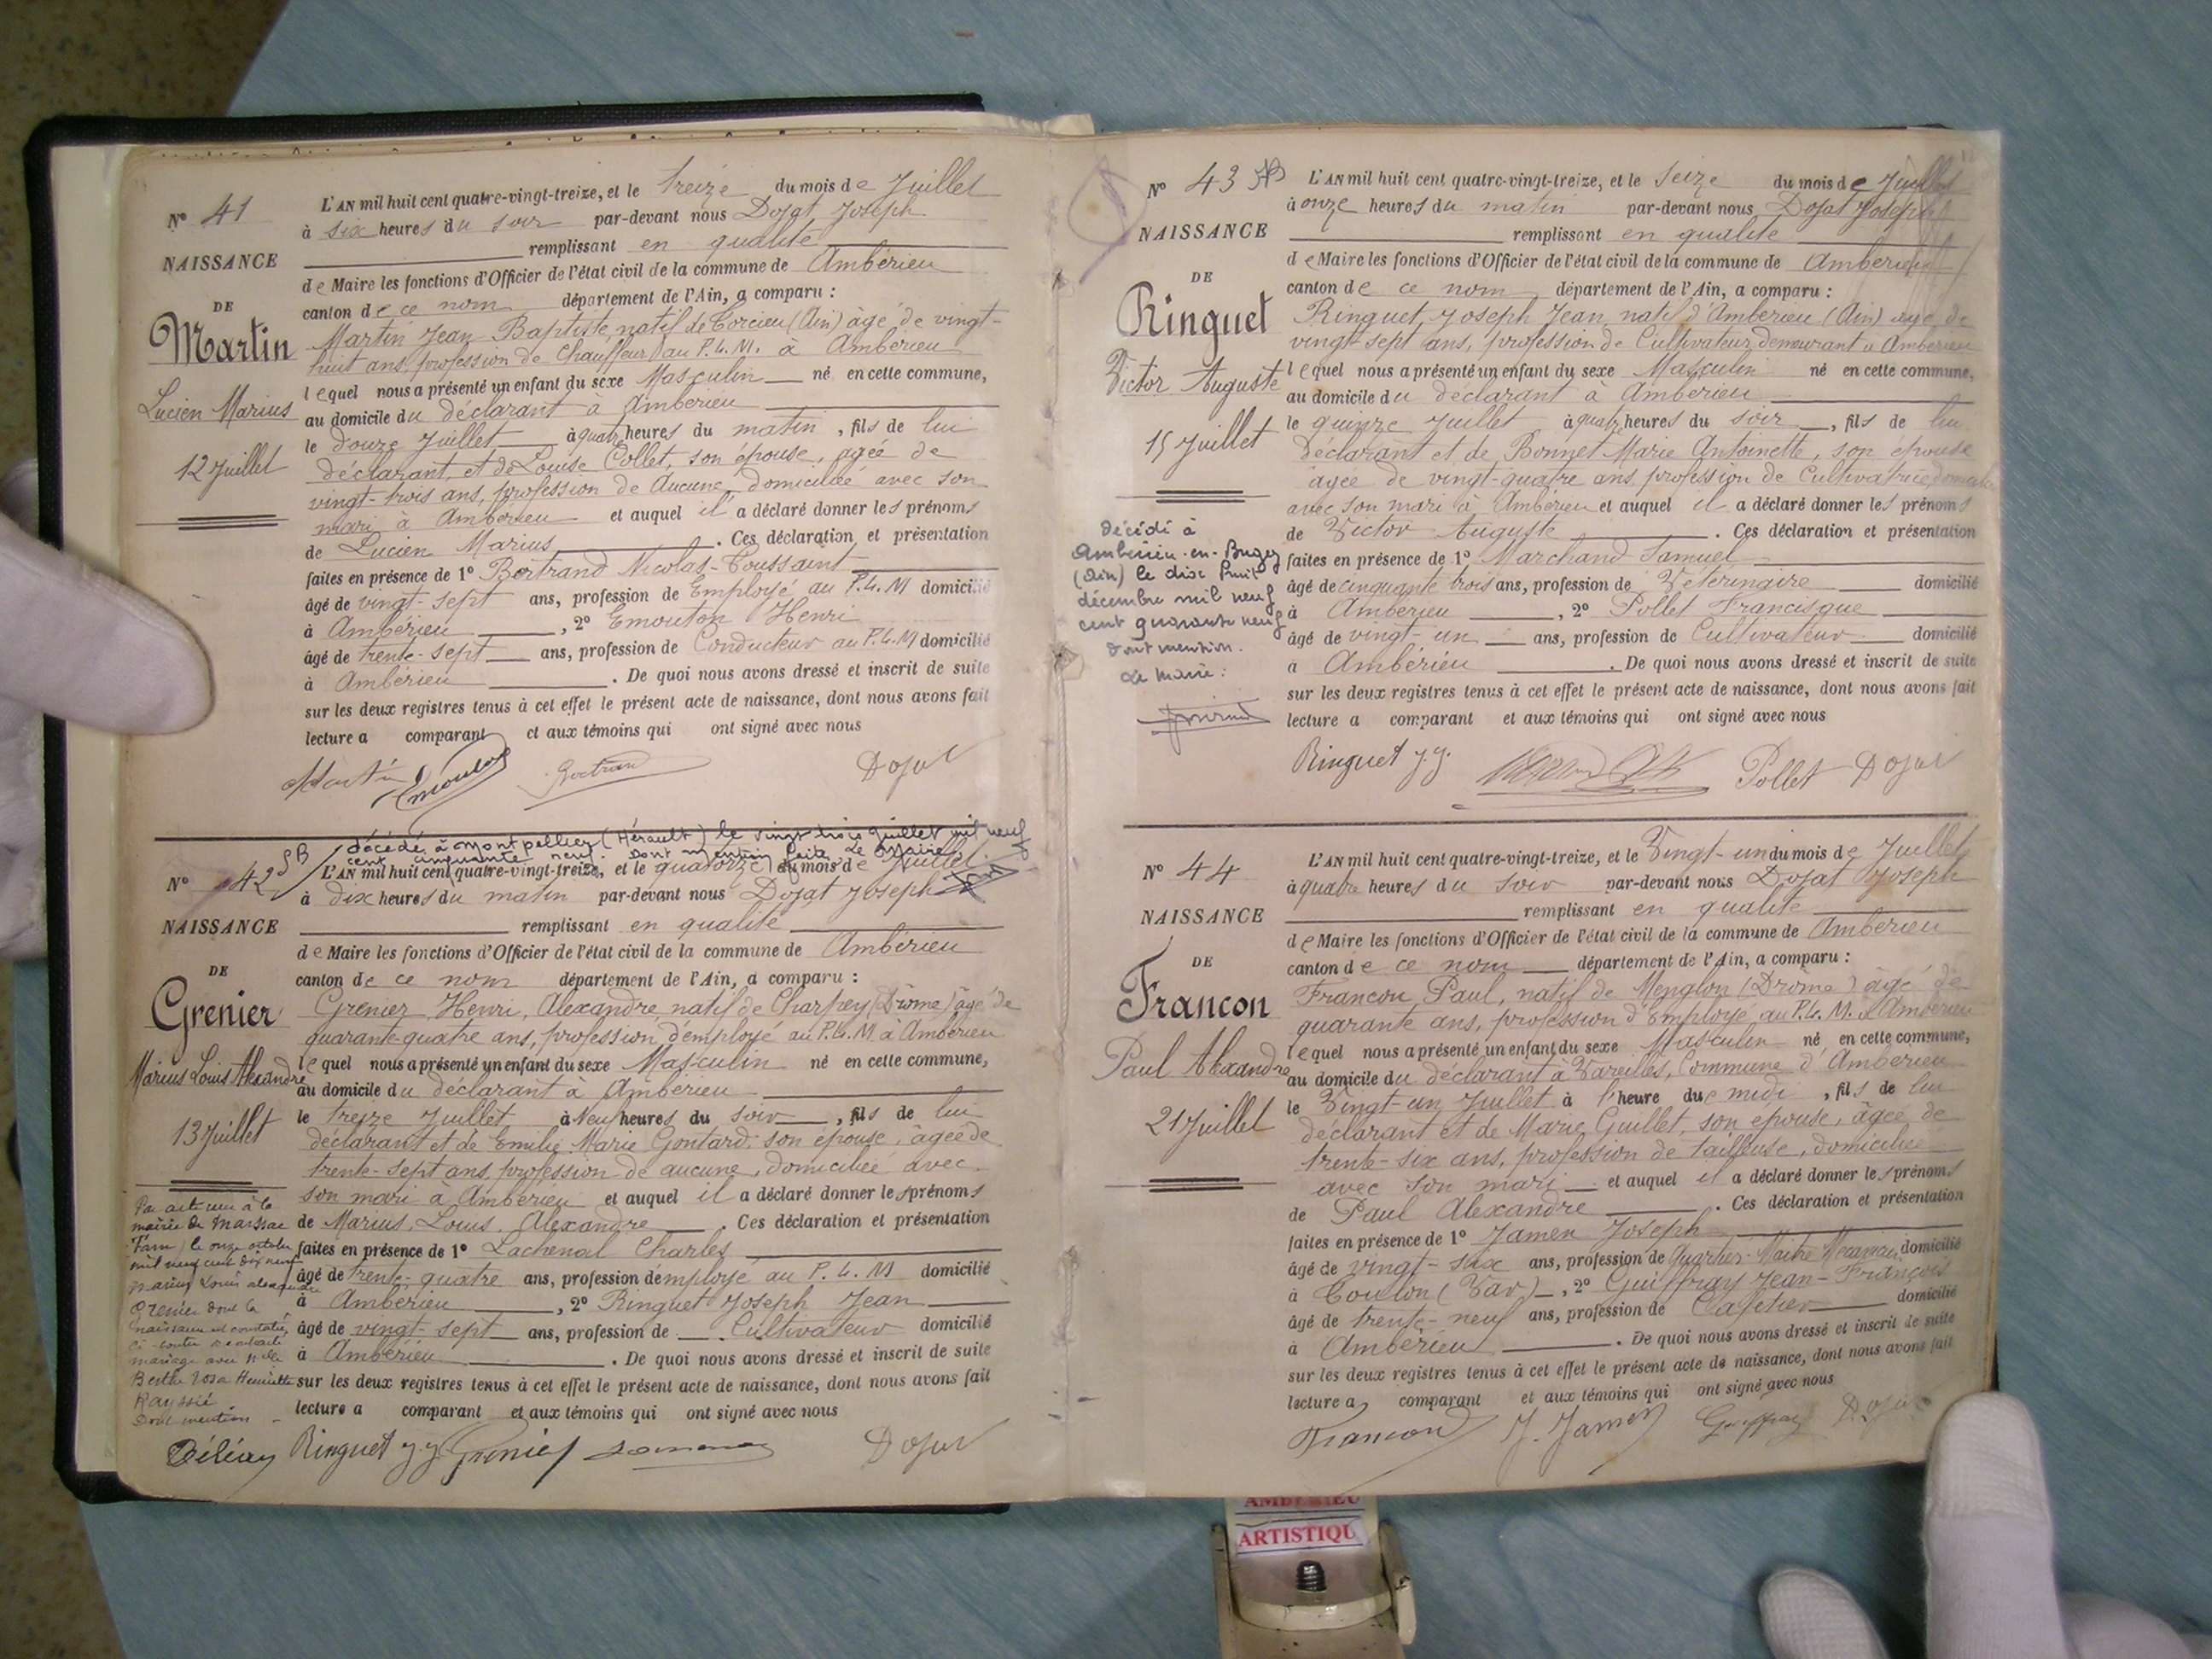 N° 41
NAISSANCE
DE
Martin
Lucien Marius
12 Juillet
L'AN mil huit cent quatre-vingt-treize, et le treize du mois de Juillet
à six heures du soir par-devant nous Dojat Joseph
remplissant en qualité
de Maire les fonctions d'Officier de l'état civil de la commune de Ambérieu
canton de ce nom département de l'Ain, a comparu :
Martin Jean Baptiste, natif de Torcieu (Ain) âgé de vingt-
huit ans, profession de Chauffeur au P.L.M. à Ambérieu
lequel nous a présenté un enfant du sexe Masculin né en cette commune,
au domicile du déclarant à Ambérieu
le douze Juillet à quatre heures du matin, fils de lui
déclarant, et de Louise Collet, son épouse, agée de
vingt-trois ans, profession de Aucune, domiciliée avec son
mari à Ambérieu et auquel il a déclaré donner les prénoms
de Lucien Marius. Ces déclaration et présentation
faites en présence de 1° Bertrand Nicolas-Toussaint
âgé de vingt-sept ans, profession de Employé au P.L.M domicilié
à Ambérieu, 2° Emouton Henri
âgé de trente-sept ans, profession de Conducteur au P.L.M domicilié
à Ambérieu. De quoi nous avons dressé et inscrit de suite
sur les deux registres tenus à cet effet le présent acte de naissance, dont nous avons fait
lecture a comparant et aux témoins qui ont signé avec nous
Martin Emouton Bertrand Dojat
décédé à Montpellier (Hérault) le vingt trois Juillet mil neuf
cent cinquante neuf. Dont mention faite Le Maire
N° 42
NAISSANCE
DE
Grenier
Marius Louis Alexandre
13 Juillet
Par acte reçu à la
mairie de Marssac
Tarn) le onze octobre
mil neuf cent dix neuf
Marius Louis alexandre
Grenier dont la
naissance est constatée
ci-contre a contracté
mariage avec Melle
Berthe Rosa Henriette
Rayssié
Dont mention
L'AN mil huit cent quatre-vingt-treize, et le quatorze du mois de Juillet
à dix heures du matin par-devant nous Dojat Joseph
remplissant en qualité
de Maire les fonctions d'Officier de l'état civil de la commune de Ambérieu
canton de ce nom département de l'Ain, a comparu :
Grenier Henri, Alexandre natif de Charpey (Drôme) âgé de
quarante-quatre ans, profession d'employé au P.L.M à Ambérieu
lequel nous a présenté un enfant du sexe Masculin né en cette commune,
au domicile du déclarant à Ambérieu
le treize Juillet à Neuf heures du soir, fils de lui
déclarant et de Emilie Marie Gontard, son épouse, âgée de
trente-sept ans, profession de aucune, domiciliée avec
son mari à Ambérieu et auquel il a déclaré donner les prénoms
de Marius, Louis, Alexandre. Ces déclaration et présentation
faites en présence de 1° Lachenal Charles
âgé de trente-quatre ans, profession d'employé au P.L.M domicilié
à Ambérieu, 2° Ringuet Joseph Jean
âgé de vingt-sept ans, profession de Cultivateur domicilié
à Ambérieu. De quoi nous avons dressé et inscrit de suite
sur les deux registres tenus à cet effet le présent acte de naissance, dont nous avons fait
lecture a comparant et aux témoins qui ont signé avec nous
Ringuet J.J. Grenier Dojat
N° 43
NAISSANCE
DE
Ringuet
Victor Auguste
15 Juillet
Décédé à
Ambérieu-en-Bugey
(Ain) le dix huit
décembre mil neuf
cent quarante neuf
Dont mention.
Le Maire :
L'AN mil huit cent quatre-vingt-treize, et le Seize du mois de Juillet
à onze heures du matin par-devant nous Dojat Joseph
remplissant en qualité
de Maire les fonctions d'Officier de l'état civil de la commune de Ambérieu
canton de ce nom département de l'Ain, a comparu :
Ringuet, Joseph Jean, natif d'Ambérieu (Ain) âgé de
vingt-sept ans, profession de Cultivateur, demeurant à Ambérieu
lequel nous a présenté un enfant du sexe Masculin né en cette commune,
au domicile du déclarant à Ambérieu
le quinze Juillet à quatre heures du soir, fils de lui
déclarant et de Bonnet Marie Antoinette, son épouse
âgée de vingt-quatre ans, profession de Cultivatrice,
avec son mari à Ambérieu et auquel il a déclaré donner les prénoms
de Victor Auguste. Ces déclaration et présentation
faites en présence de 1° Marchand Samuel
âgé de cinquante trois ans, profession de Vétérinaire domicilié
à Ambérieu, 2° Pollet Francisque
âgé de vingt-un ans, profession de Cultivateur domicilié
à Ambérieu. De quoi nous avons dressé et inscrit de suite
sur les deux registres tenus à cet effet le présent acte de naissance, dont nous avons fait
lecture a comparant et aux témoins qui ont signé avec nous
Ringuet J.J. Pollet Dojat
N° 44
NAISSANCE
DE
Francon
Paul Alexandre
21 Juillet
L'AN mil huit cent quatre-vingt-treize, et le Vingt-un du mois de Juillet
à quatre heures du soir par-devant nous Dojat Joseph
remplissant en qualité
de Maire les fonctions d'Officier de l'état civil de la commune de Ambérieu
canton de ce nom département de l'Ain, a comparu :
Francon, Paul, natif de Menglon (Drôme) âgé de
quarante ans, profession d'Employé au P.L.M. à Ambérieu
lequel nous a présenté un enfant du sexe Masculin né en cette commune,
au domicile du déclarant à Vareilles, Commune d'Ambérieu
le Vingt-un Juillet à 1 heure du midi, fils de lui
déclarant et de Marie Guillet, son épouse, âgée de
trente-six ans, profession de tailleuse, domiciliée
avec son mari et auquel il a déclaré donner les prénoms
de Paul Alexandre. Ces déclaration et présentation
faites en présence de 1° Jamen Joseph
âgé de vingt-six ans, profession de Quartier-Maître Mécanicien domicilié
à Toulon (Var), 2° Guiffray Jean-François
âgé de trente-neuf ans, profession de Cafetier domicilié
à Ambérieu. De quoi nous avons dressé et inscrit de suite
sur les deux registres tenus à cet effet le présent acte de naissance, dont nous avons fait
lecture a comparant et aux témoins qui ont signé avec nous
Francon J. Jamen Guiffray Dojat
AMBERIEU
ARTISTIQU